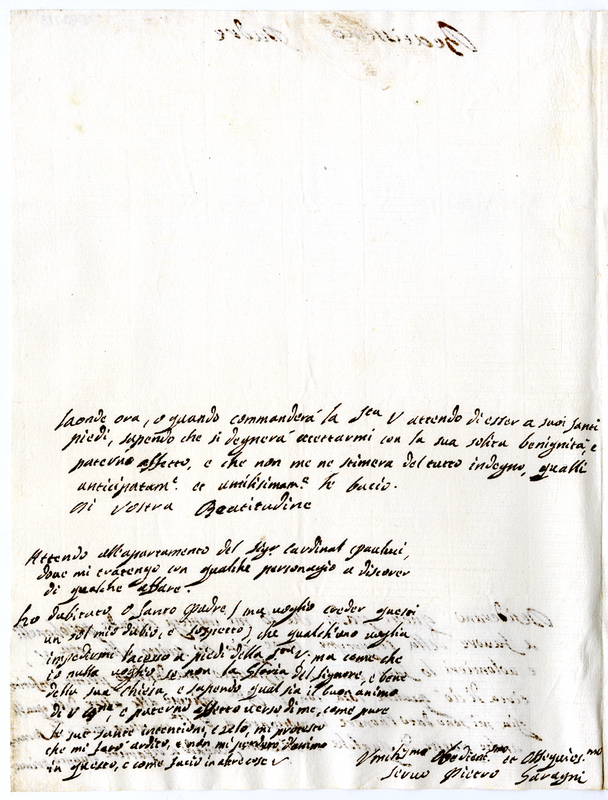 Laonde ora, o quando commanderà la Sta V attendo di esser a suoi santi
piedi, sapendo che si degnerà accettarmi con la sua solita benignità, e
paterno affetto, e che non me ne stimerà del tutto indegno, qualli
anticipatam.e et umilissimam.e le bacio.
Di Vostra Beatitudine
Attendo all'apartamento del Sigr Cardinal Paulucci,
dove mi tratengo con qualche personagio a discorer
di qualche affare.
Ho dubitato o Santo Padre) ma voglio creder questi
un sol mio dubio, e sospetto) che qualch'uno voglia
impedirmi l'acesso a piedi della Sta V ma come che
io nulla voglio, se non la Gloria del Signore, e bene
della sua Chiesa, e sapendo qual sia il buon animo
di V Sta, e paterno affetto verso di me, come pure
le sue sante intentioni, e zelo, mi protesto
che mi farò ardito, e non mi perderò d'animo
in questo, e come facio in altre cose
Vmilissmo Obedient.mo et Ossequios.mo
Servo Pietro Garagni